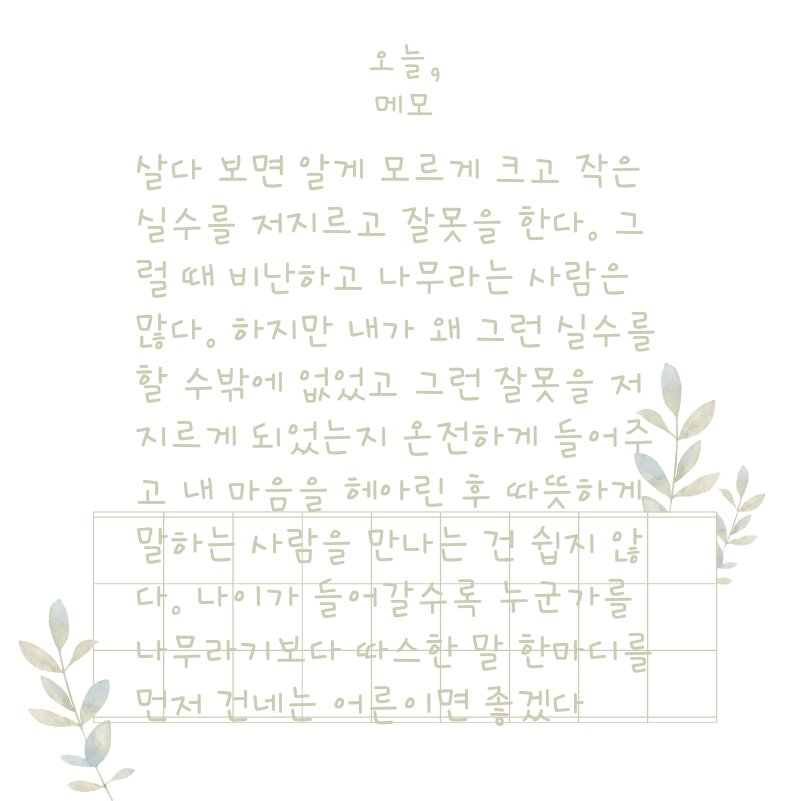 오늘,
메모
살다 보면 알게 모르게 크고 작은
실수를 저지르고 잘못을 한다. 그
럴 때 비난하고 나무라는 사람은
많다. 하지만 내가 왜 그런 실수를
할 수밖에 없었고 그런 잘못을 저
지르게 되었는지 온전하게 들어주
고 내 마음을 헤아린 후 따뜻하게
말하는 사람을 만나는 건 쉽지 않
다. 나이가 들어갈수록 누군가를
나무라기보다 따스한 말 한마디를
먼저 건네는 어른이면 좋겠다